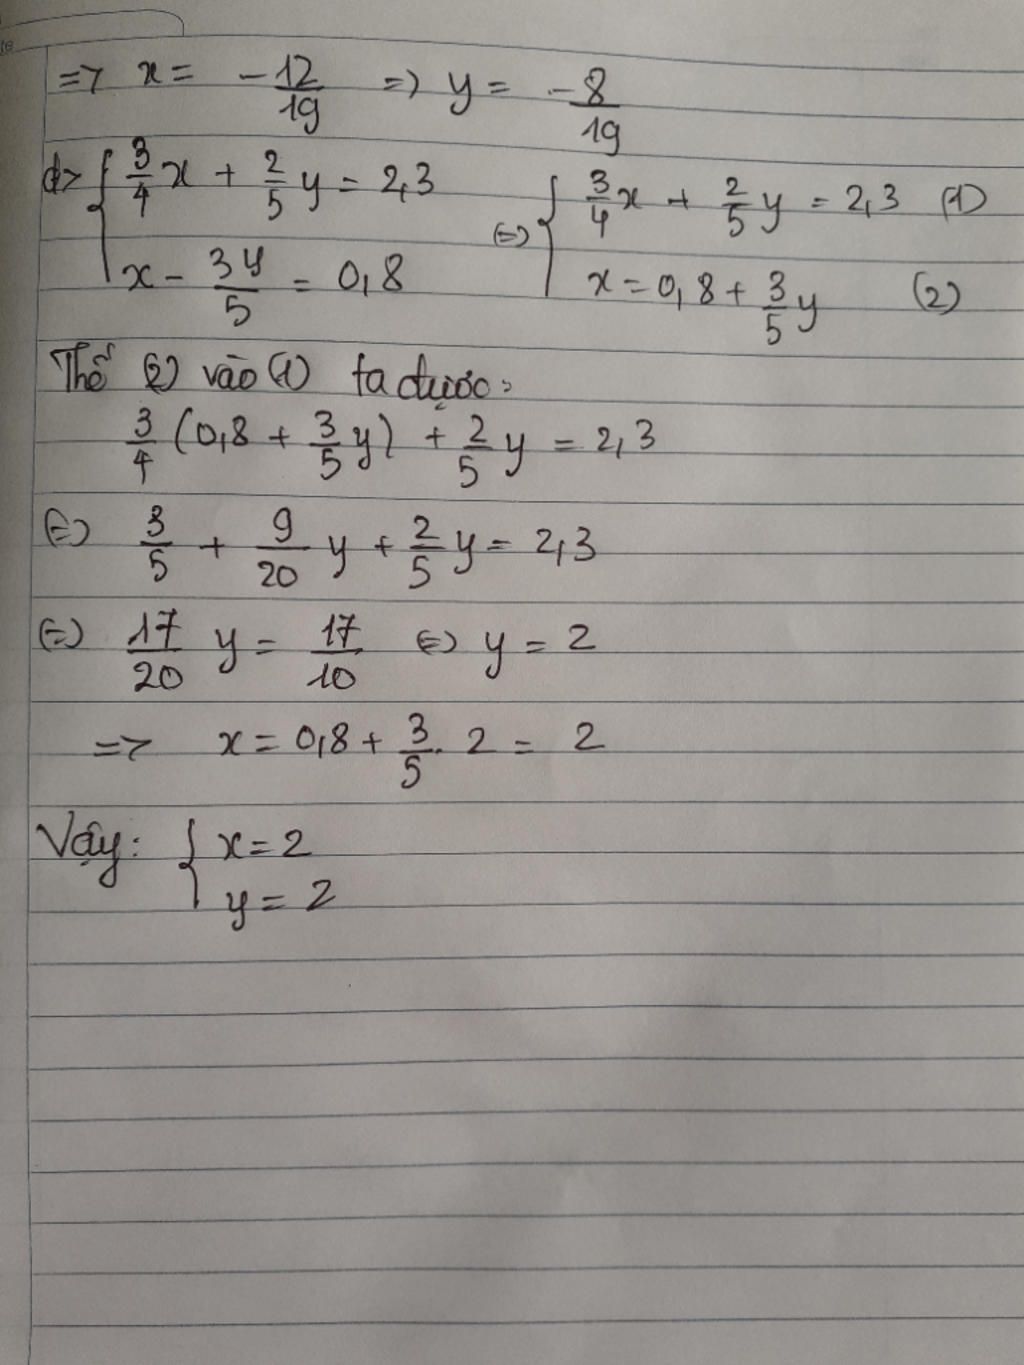 => x = -12/19 => y = -8/19
d> { 3/4 x + 2/5 y = 2,3 (=) { 3/4 x + 2/5 y = 2,3 (1)
x - 3y/5 = 0,8 x = 0,8 + 3/5 y (2)
Thế (2) vào (1) ta được:
3/4 (0,8 + 3/5 y) + 2/5 y = 2,3
(=) 3/5 + 9/20 y + 2/5 y = 2,3
(=) 17/20 y = 17/10 (=) y = 2
=> x = 0,8 + 3/5 . 2 = 2
Vậy: { x = 2
y = 2